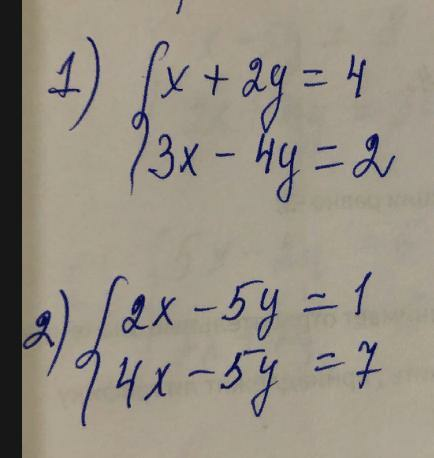 1) { x + 2y = 4
3x - 4y = 2
2) { 2x - 5y = 1
4x - 5y = 7